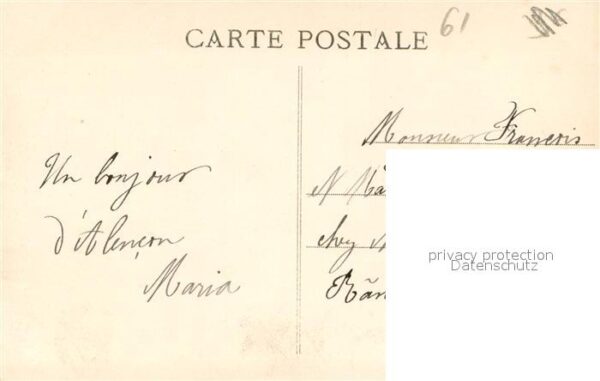 61
CARTE POSTALE
Un bonjour
d'Alençon
Maria
Monsieur François
chez
privacy protection
Datenschutz